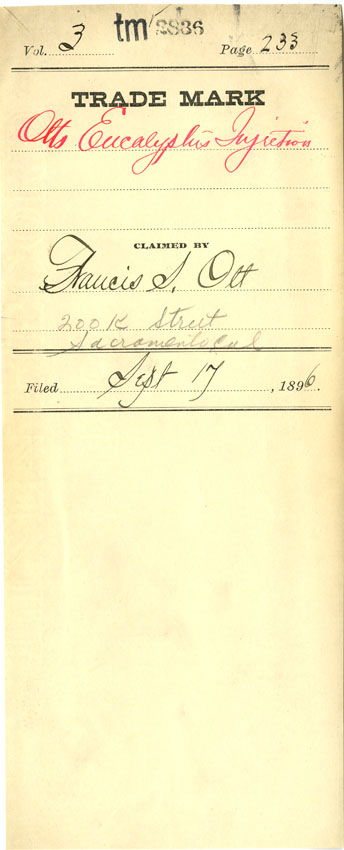 Vol. 3 tm 2886 Page 233
TRADE MARK
Otts Eucalyptus Injection
CLAIMED BY
Francis S. Ott
200 K Street
Sacramento Cal
Filed Sept 17, 1896.